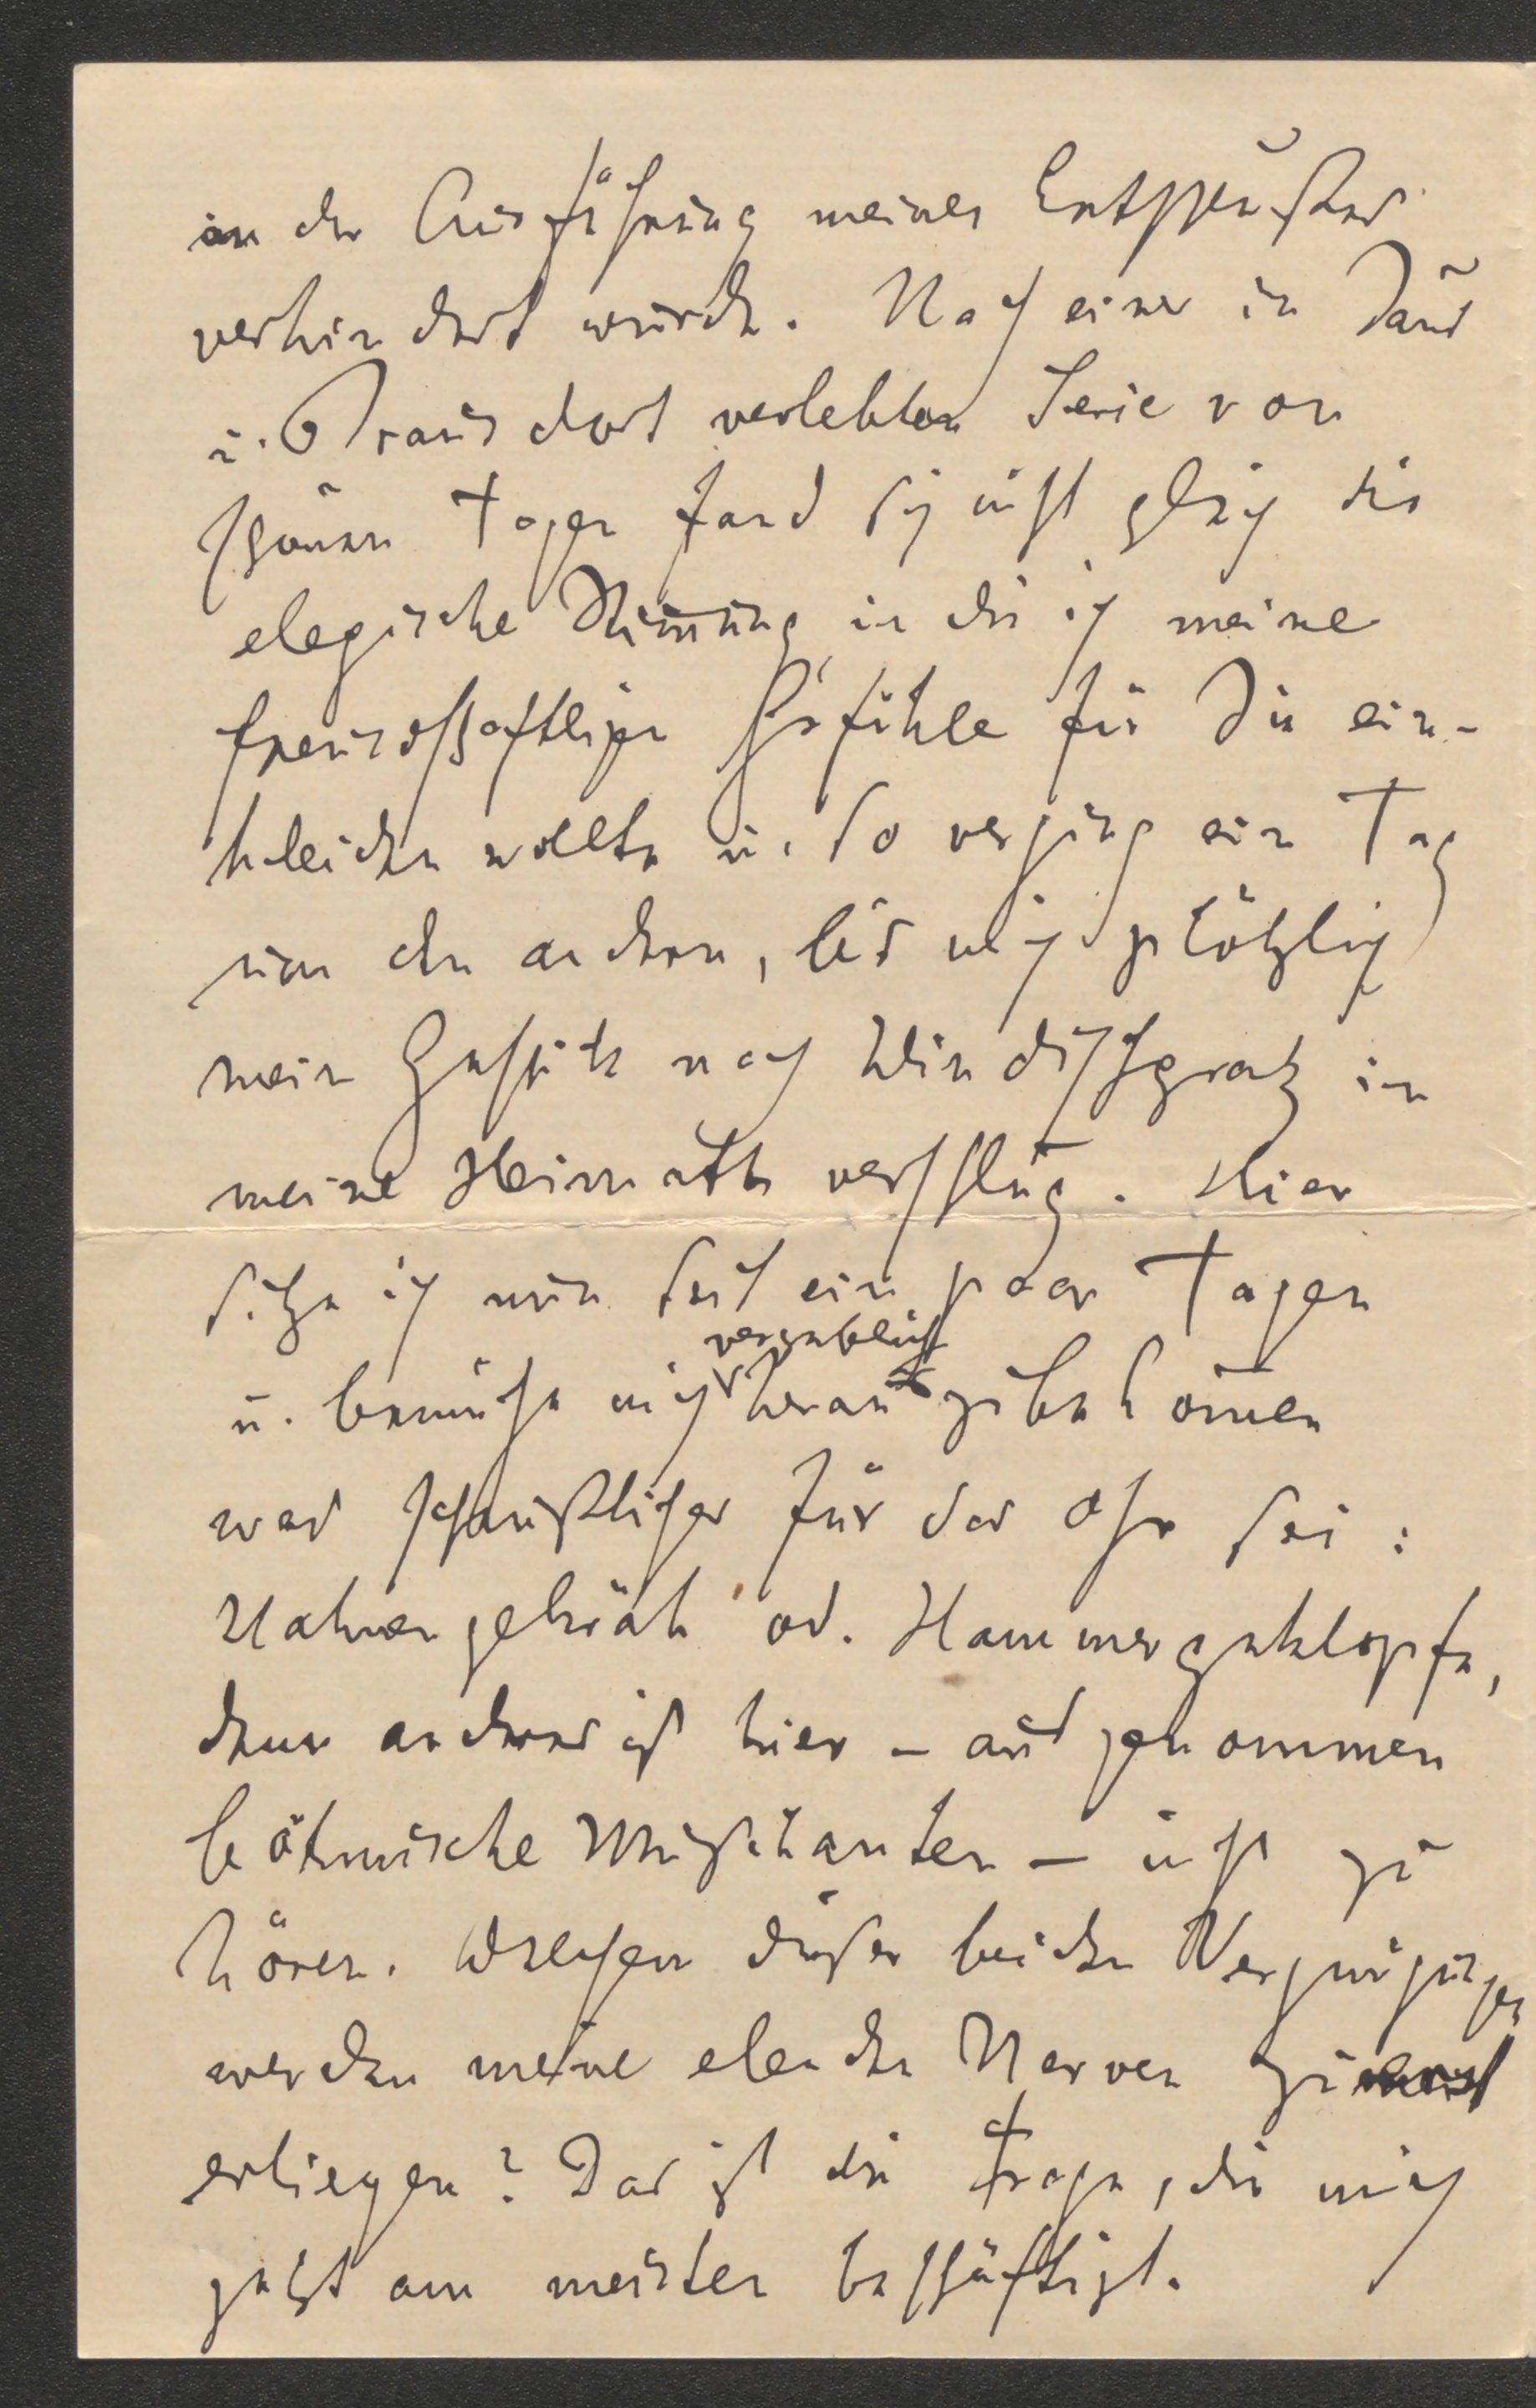 an der Ausführung meines Entschlusses
verhindert wurde. Nach einer in Saus
u. Braus dort verlebten Serie von
schönen Tagen fand sich nicht gleich die
elegische Stimmung, in die ich meine
freundschaftlichen Gefühle für Sie ein-
kleiden wollte u. so verging ein Tag
um den andern, bis mich plötzlich
mein Geschick nach Windischgraz in
meine Heimath verschlug. Hier
sitze ich nun seit ein paar Tagen
u. bemühe mich vergeblich herauszubekommen
was scheußlicher für das Ohr sei:
Hahnengekräh od. Hammergeklopfe,
denn anderes ist hier – ausgenommen
böhmische Musikanten – nicht zu
hören. Welchem dieser beiden Vergnügungen
werden meine elenden Nerven zuerst
erliegen? Das ist die Frage, die mich
jetzt am meisten beschäftigt.